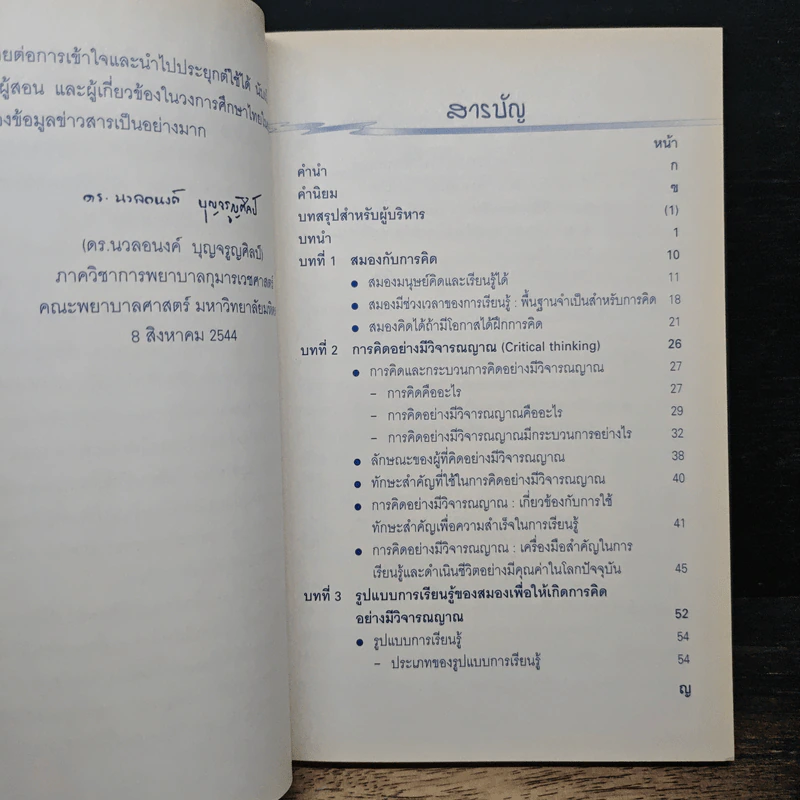 ยต่อการเข้าใจและนำไปประยุกต์ใช้ได้
ผู้สอน และผู้เกี่ยวข้องในวงการศึกษาไทย
องข้อมูลข่าวสารเป็นอย่างมาก
ดร. นวลอนงค์ บุญจรูญศิลป์
(ดร.นวลอนงค์ บุญจรูญศิลป์)
ภาควิชาการพยาบาลกุมารเวชศาสตร์
คณะพยาบาลศาสตร์
8 สิงหาคม 2544
สารบัญ
หน้า
คำนำ ก
คำนิยม ช
บทสรุปสำหรับผู้บริหาร (1)
บทนำ 1
บทที่ 1 สมองกับการคิด 10
● สมองมนุษย์คิดและเรียนรู้ได้ 11
● สมองมีช่วงเวลาของการเรียนรู้ : พื้นฐานจำเป็นสำหรับการคิด 18
● สมองคิดได้ถ้ามีโอกาสได้ฝึกการคิด 21
บทที่ 2 การคิดอย่างมีวิจารณญาณ (Critical thinking) 26
● การคิดและกระบวนการคิดอย่างมีวิจารณญาณ 27
– การคิดคืออะไร 27
– การคิดอย่างมีวิจารณญาณคืออะไร 29
– การคิดอย่างมีวิจารณญาณมีกระบวนการอย่างไร 32
● ลักษณะของผู้ที่คิดอย่างมีวิจารณญาณ 38
● ทักษะสำคัญที่ใช้ในการคิดอย่างมีวิจารณญาณ 40
● การคิดอย่างมีวิจารณญาณ : เกี่ยวข้องกับการใช้
ทักษะสำคัญเพื่อความสำเร็จในการเรียนรู้ 41
● การคิดอย่างมีวิจารณญาณ : เครื่องมือสำคัญในการ
เรียนรู้และดำเนินชีวิตอย่างมีคุณค่าในโลกปัจจุบัน 45
บทที่ 3 รูปแบบการเรียนรู้ของสมองเพื่อให้เกิดการคิด
อย่างมีวิจารณญาณ 52
● รูปแบบการเรียนรู้ 54
– ประเภทของรูปแบบการเรียนรู้ 54
ญ